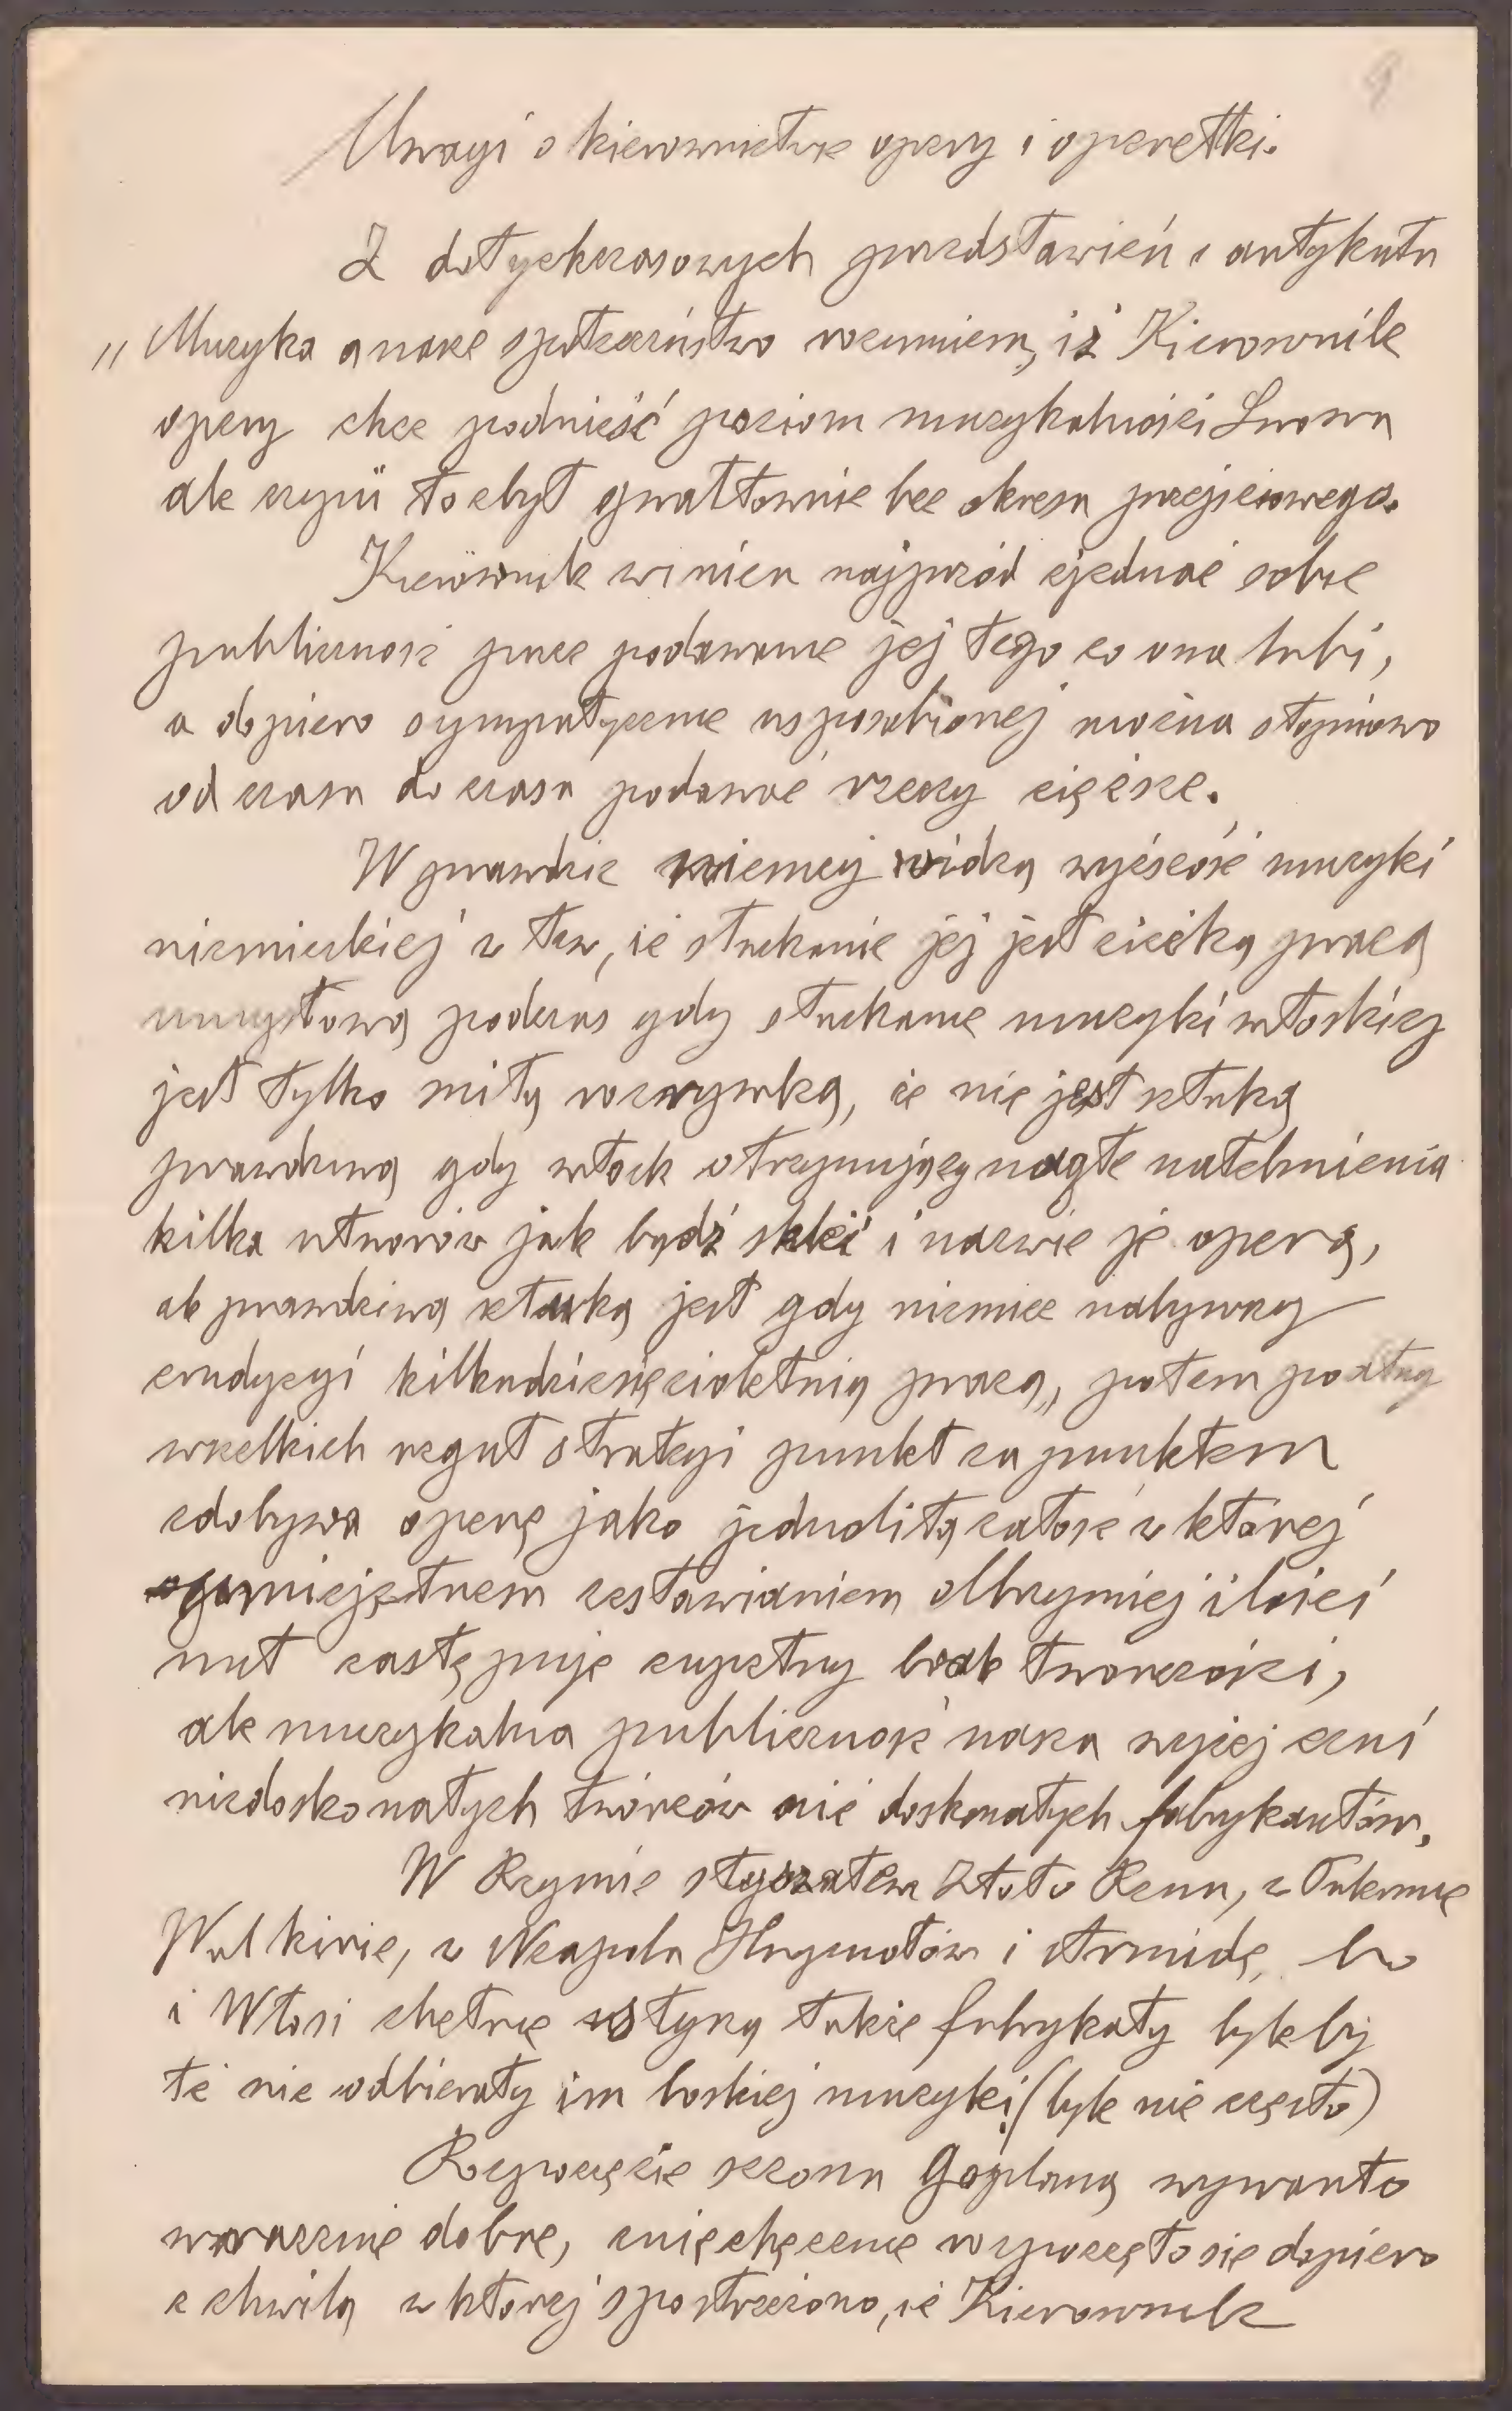 9
Uwagi o kierownictwie opery i operetki.
Z dotychczasowych przedstawień i artykułu
„Muzyka a nasze społeczeństwo rozumiem, iż Kierownik
opery chce podnieść poziom muzykalności Lwowa
ale czyni to zbyt gwałtownie bez okresu przejściowego.
Kierownik winien najprzód zjednać sobie
publiczność przez podawanie jej tego co ona lubi,
a dopiero sympatycznie usposobionej można stopniowo
od czasu do czasu podawać rzeczy cięższe.
Wprawdzie niemcy widzą wyższość muzyki
niemieckiej w tem, że słuchanie jej jest ciężką pracą
umysłową podczas gdy słuchanie muzyki włoskiej
jest tylko miłą rozrywką, że nie jest sztuką
prawdziwą gdy włoch otrzymujący nagłe natchnienia
kilka utworów jak bądź sklei i nazwie je operą,
ale prawdziwą sztuką jest gdy niemiec nabywszy
erudycyi kilkudziesięcioletnią pracą, potem podług
wszelkich reguł strategi punkt za punktem
zdobywa operę jako jednolitą całość w której
umiejętnem zestawianiem olbrzymiej ilości
nut zastępuje zupełny brak twórczości,
ale muzykalna publiczność nasza wyżej ceni
niedoskonałych twórców niż doskonałych fabrykantów.
W Rzymie słyszałem Złoto Renu, w Palermie
Walkirie, w Neapolu Hugonotów i Armidę, bo
i Włosi chętnie słyszą takie fabrykaty byleby
te nie odbierały im boskiej muzyki! (byle nie często)
Rozpoczęcie sezonu Goplaną wywarło
wrażenie dobre, zniechęcenie rozpoczęło się dopiero
z chwilą w której spostrzeżono, że Kierownik